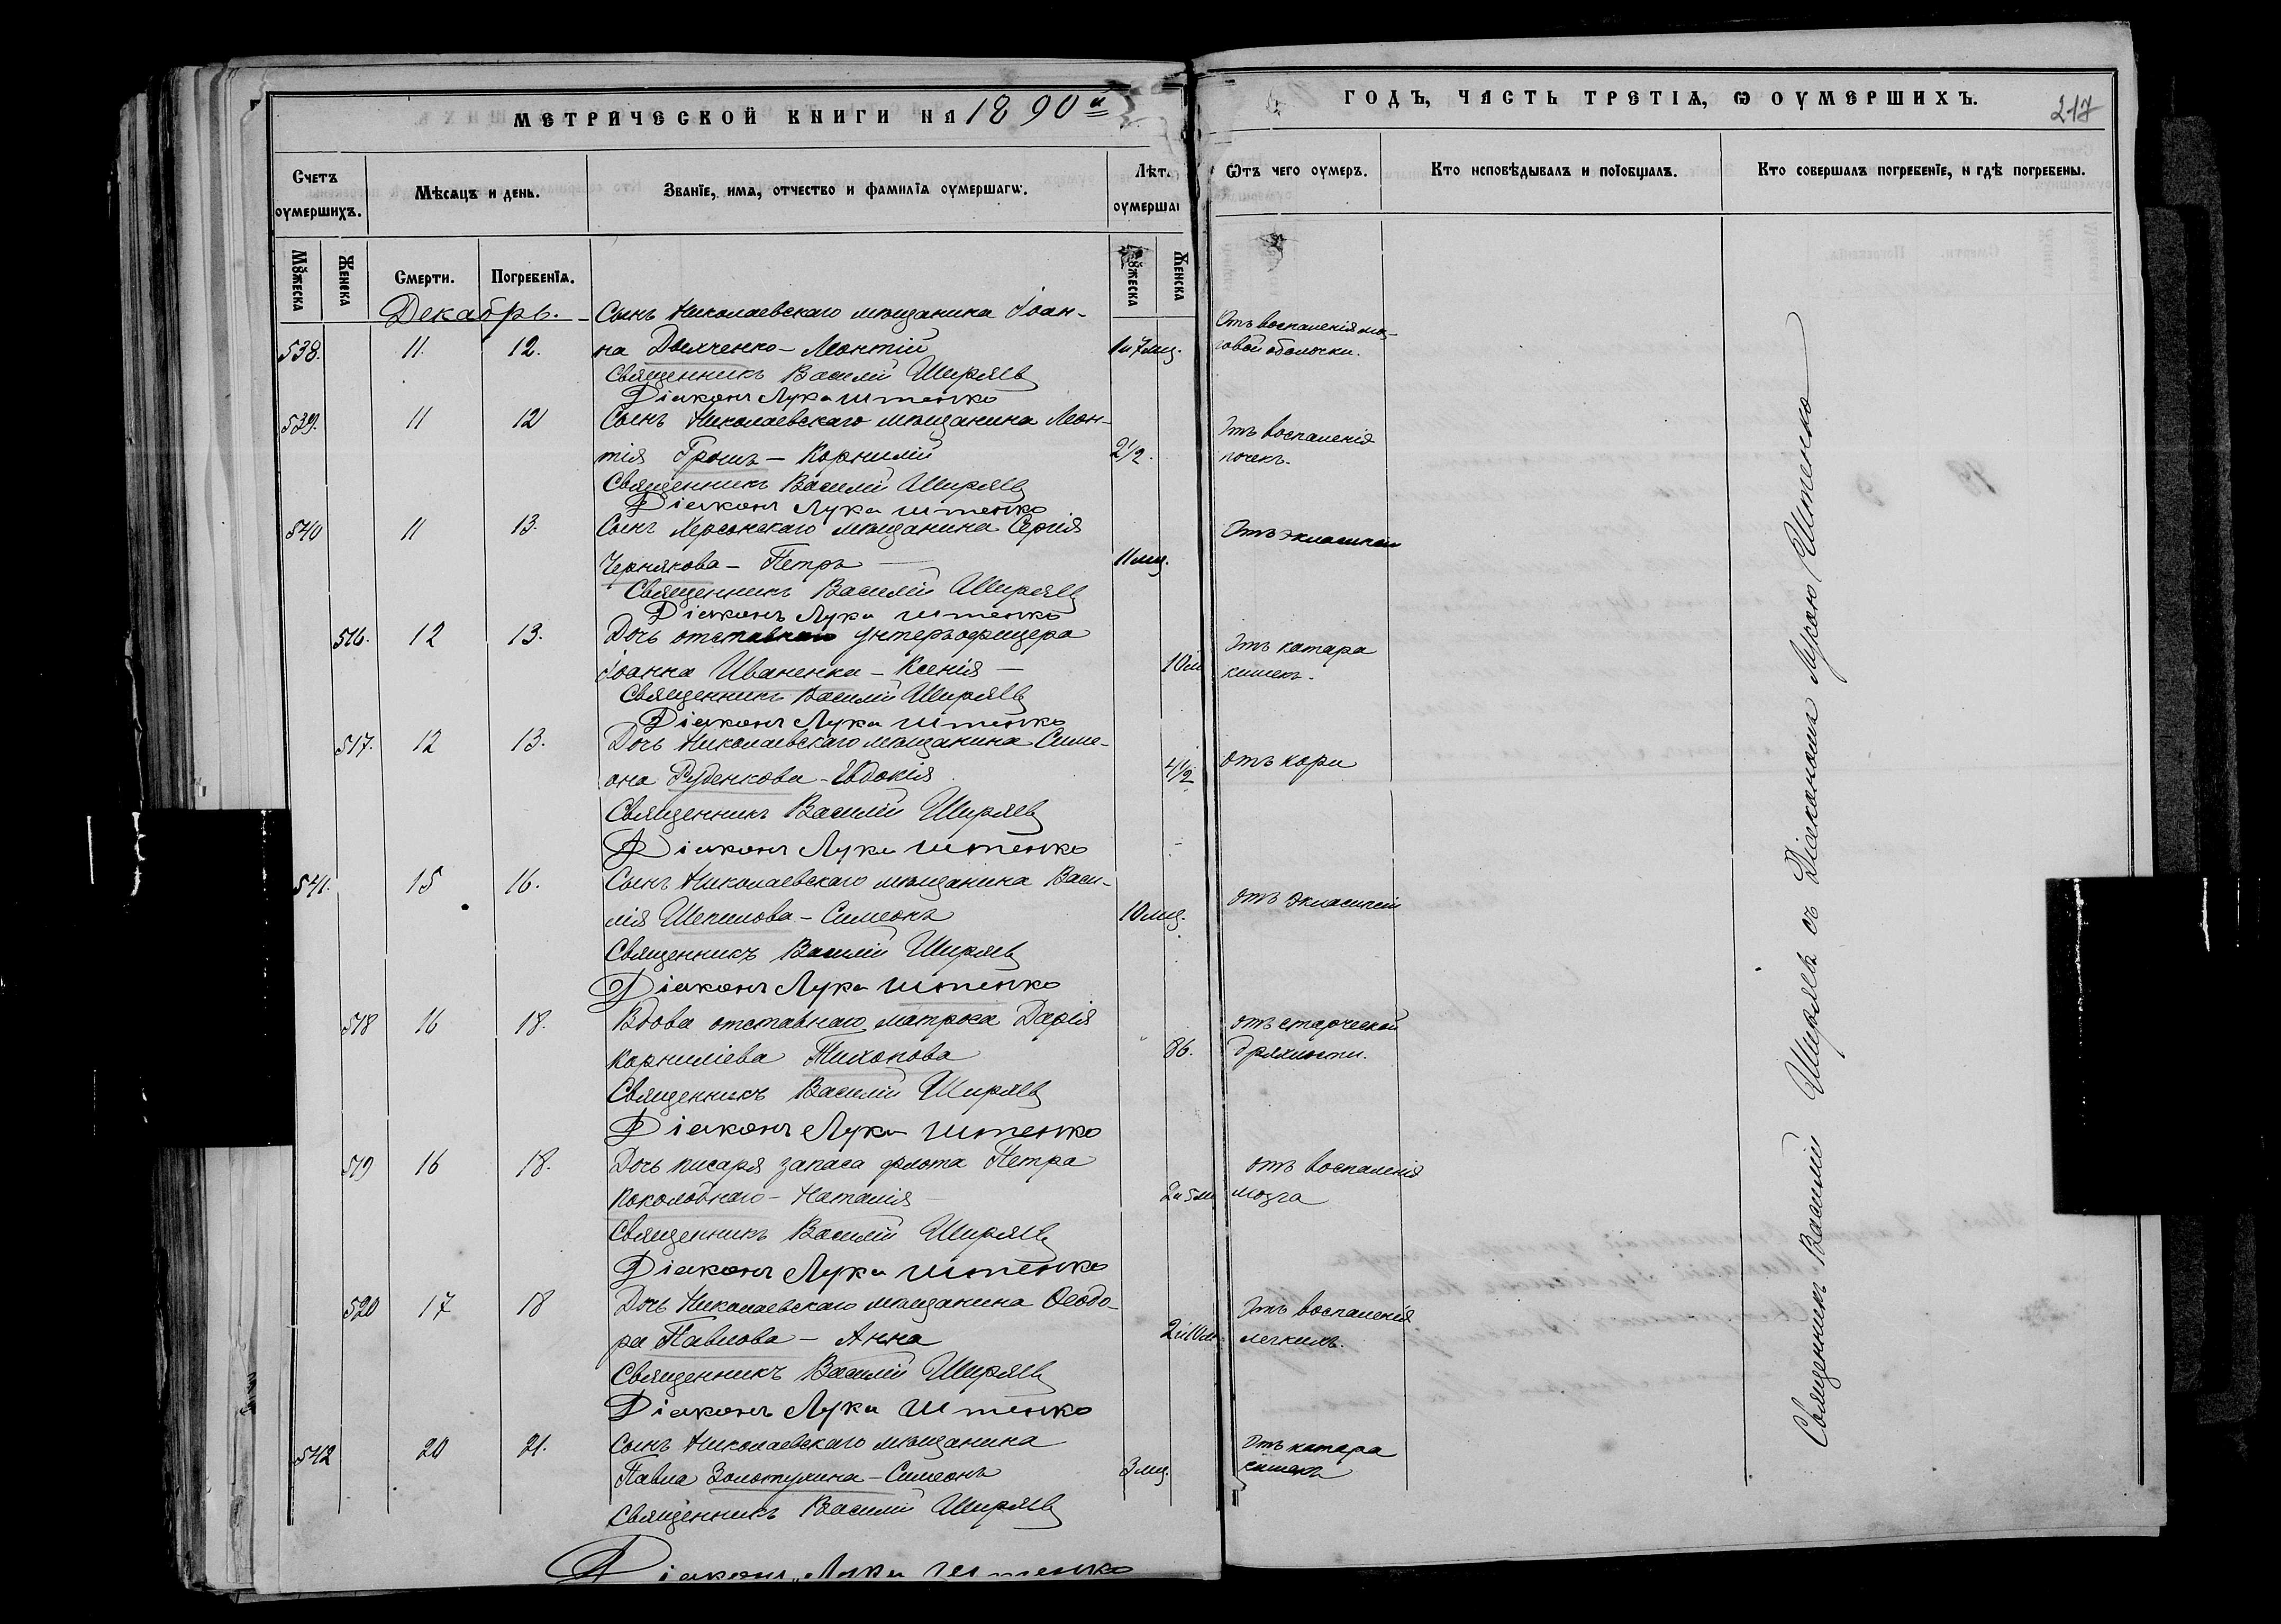 МЕТРИЧЕСКОЙ КНИГИ НА 1890й
ГОДЪ, ЧАСТЬ ТРЕТІѦ, Ѡ ОУМЕРШИХЪ.
217
Счетъ оумершихъ.
Мѣсѧцъ и день.
Званїе, имѧ, отчество и фамилїѧ оумершагѡ.
Лѣт
оумершаг
Ѿтъ чего оумеръ.
Кто исповѣдывалъ и пїобщалъ.
Кто совершалъ погребенїе, и гдѣ погребены.
Мꙋжеска
Женска
Смерти.
Погребенїѧ.
Мꙋжеска
Женска
Декабрь. Сынъ Николаевскаго мѣщанина Іоан-
Отъ воспаленія моз-
538. 11. 12. на Дьяченко – Леонтій 1 и 7 мц. говой оболочки.
Священникъ Василій Ширяевъ
Діаконъ Лука Штенко
539. 11 12 Сынъ Николаевскаго мѣщанина Леон-
Отъ воспаленія
тія Грошъ – Корнилій 2½. почекъ.
Священникъ Василій Ширяевъ
Діаконъ Лука Штенко
540 11 13. Сынъ Херсонскаго мѣщанина Сергія
Отъ эклампсіи
Чернякова – Петръ 11 мц.
Священникъ Василій Ширяевъ
Діаконъ Лука Штенко
516. 12 13. Дочь отставнаго унтеръ офицера
Отъ катара
Іоанна Иваненка – Ксенія 10 м кишекъ.
Священникъ Василій Ширяевъ
Діаконъ Лука Штенко
517. 12 13. Дочь Николаевскаго мѣщанина Симе-
она Руденкова – Евдокія 4½ отъ кори
Священникъ Василій Ширяевъ
Діаконъ Лука Штенко
541. 15 16. Сынъ Николаевскаго мѣщанина Васи-
лія Шепилова – Симеонъ 10 мц. отъ эклампсіи
Священникъ Василій Ширяевъ
Діаконъ Лука Штенко
518 16 18. Вдова отставнаго матроса Дарія
отъ старческой
Корниліева Тихонова 86. дряхлости.
Священникъ Василій Ширяевъ
Діаконъ Лука Штенко
519 16 18. Дочь писаря запаса флота Петра
отъ воспаленія
Коколобнаго – Наталія 2 и 5 м мозга
Священникъ Василій Ширяевъ
Діаконъ Лука Штенко
520 17 18 Дочь Николаевскаго мѣщанина Ѳеодо-
Отъ воспаленія
ра Павлова – Анна 2 и 10 м легкихъ.
Священникъ Василій Ширяевъ
Діаконъ Лука Штенко
542 20 21. Сынъ Николаевскаго мѣщанина
Отъ катара
Павла Золотухина – Симеонъ 3 мц. кишекъ
Священникъ Василій Ширяевъ
Діаконъ Лука Штенко
Священникъ Василій Ширяевъ съ Діакономъ Лукою Штенко